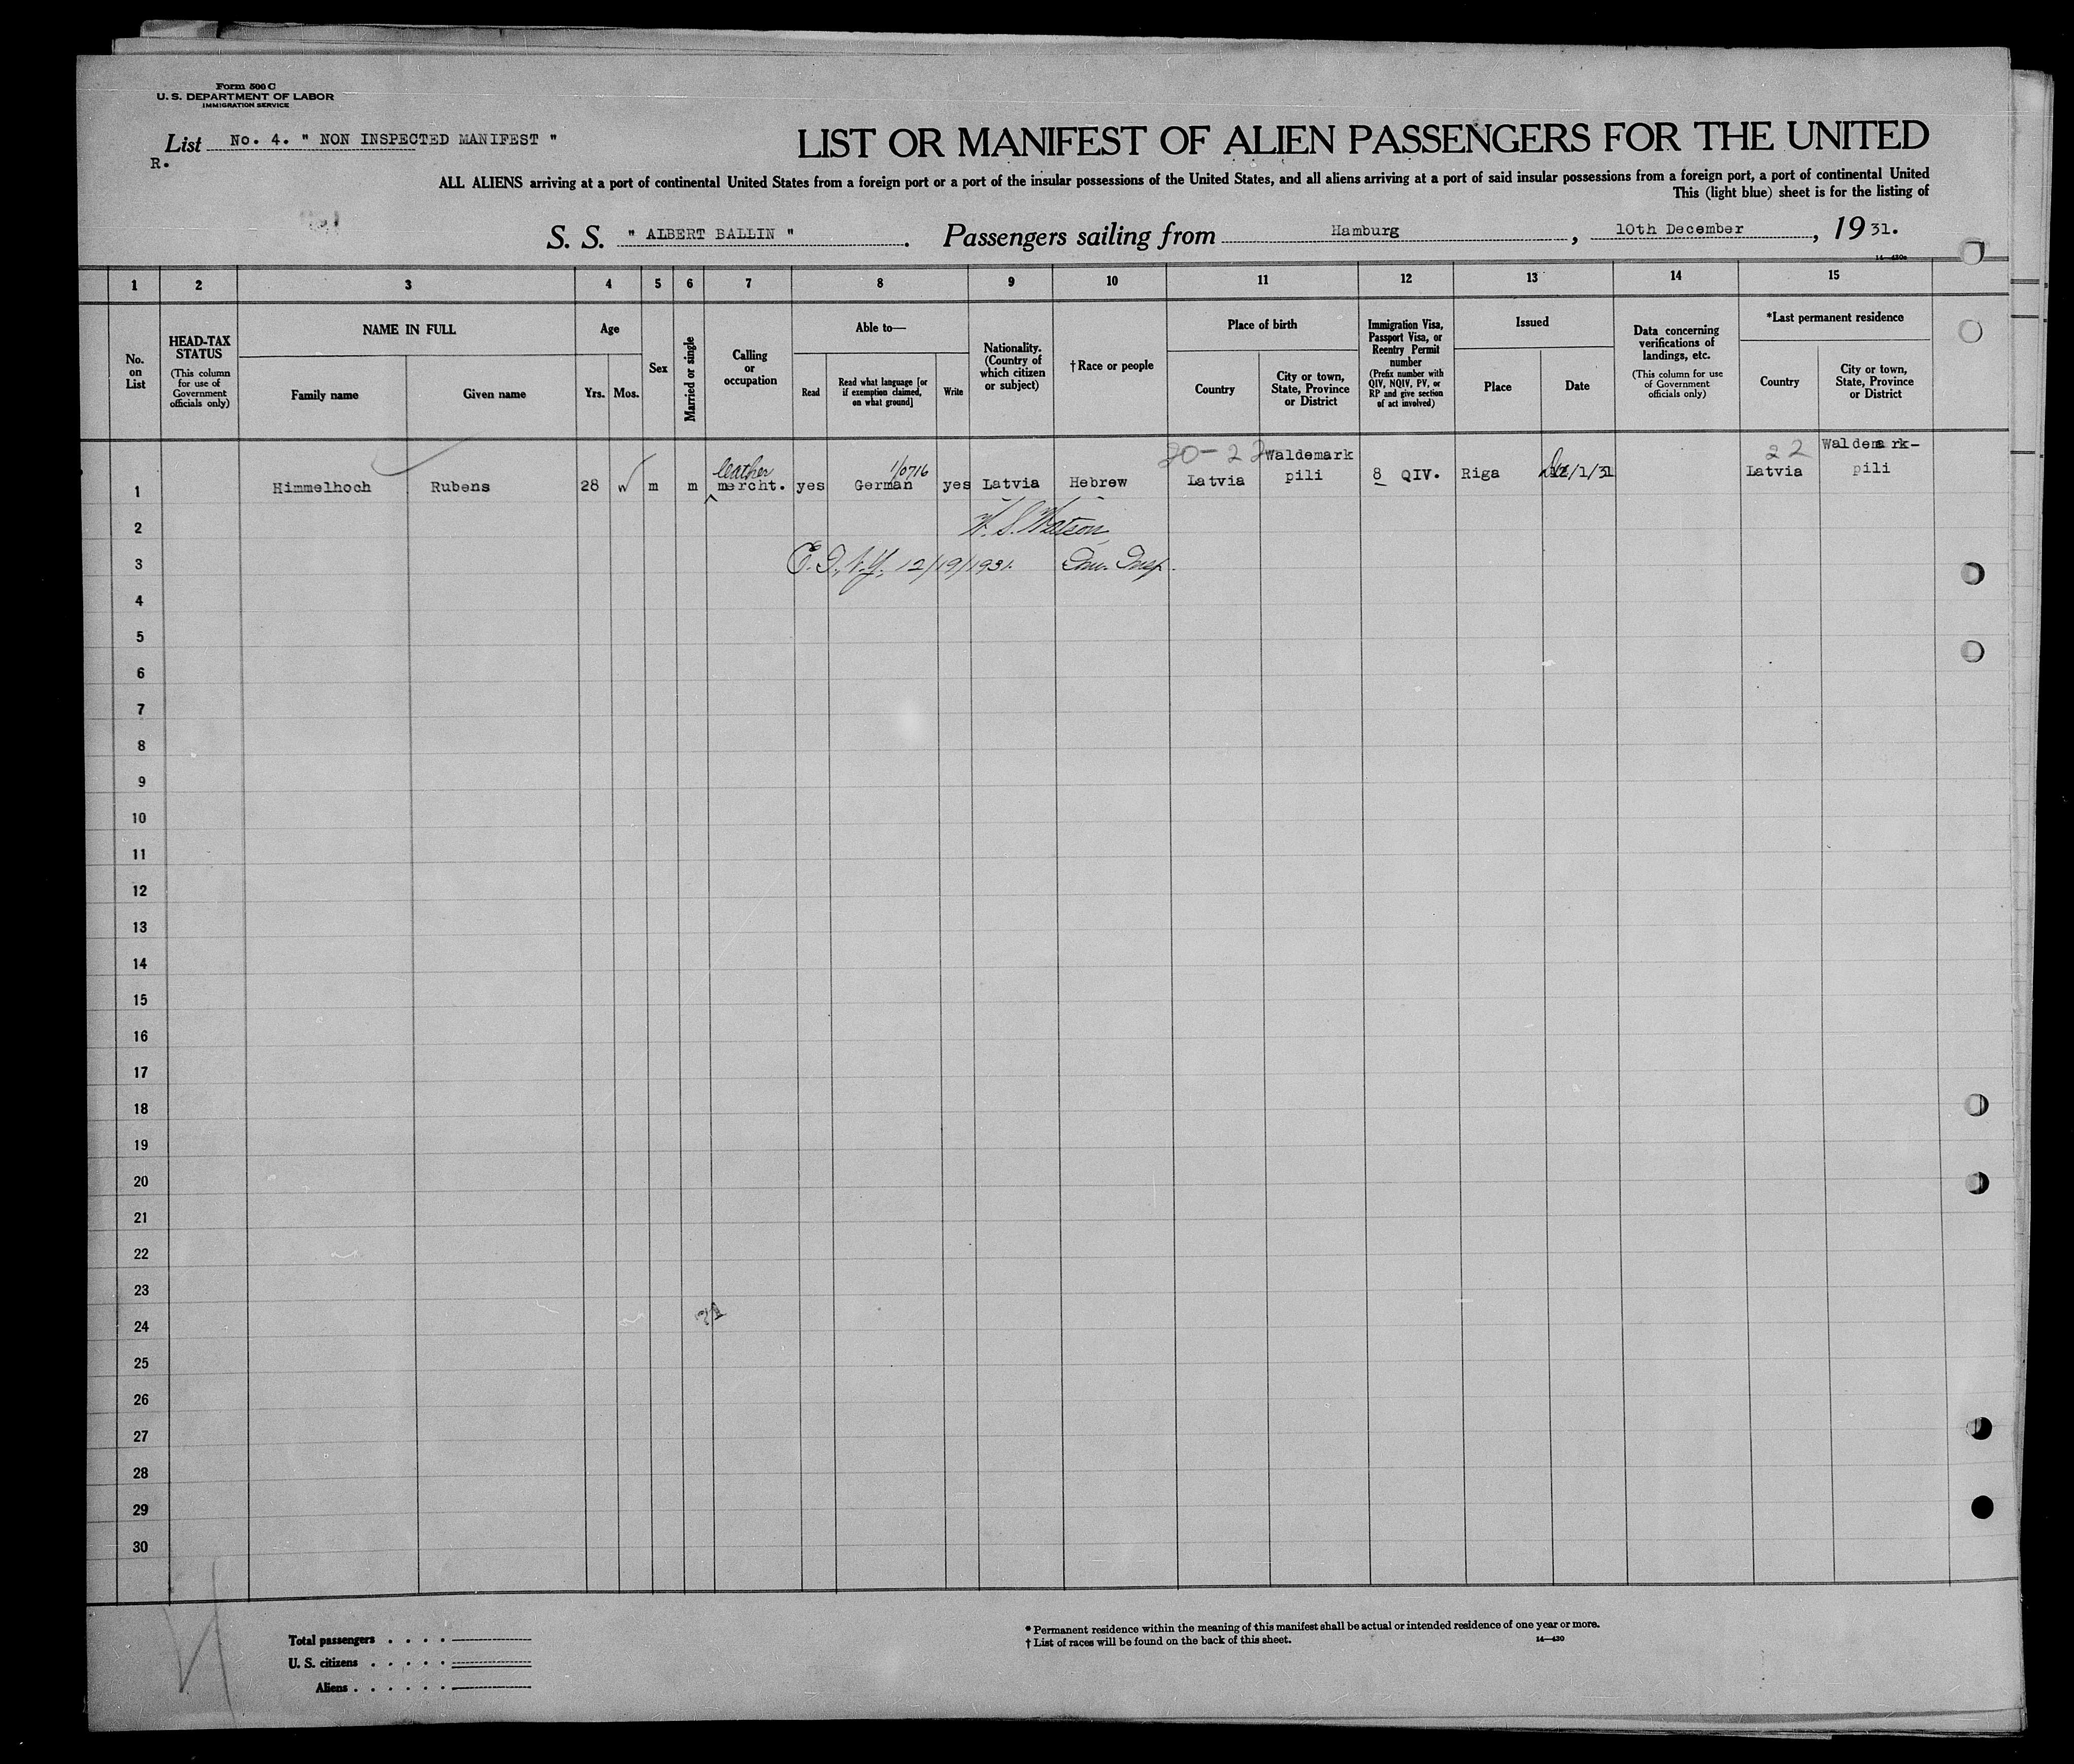 Form 500 C
U. S. DEPARTMENT OF LABOR
IMMIGRATION SERVICE
List No. 4. " NON INSPECTED MANIFEST "
R.
LIST OR MANIFEST OF ALIEN PASSENGERS FOR THE UNITED
ALL ALIENS arriving at a port of continental United States from a foreign port or a port of the insular possessions of the United States, and all aliens arriving at a port of said insular possessions from a foreign port, a port of continental United
This (light blue) sheet is for the listing of
S. S. " ALBERT BALLIN ". Passengers sailing from Hamburg, 10th December, 1931.
14—430a
1 2 3 4 5 6 7 8 9 10 11 12 13 14 15
No. on List
HEAD-TAX STATUS
(This column for use of Government officials only)
NAME IN FULL
Family name
Given name
Age
Yrs.
Mos.
Sex
Married or single
Calling or occupation
Able to—
Read
Read what language [or if exemption claimed, on what ground]
Write
Nationality. (Country of which citizen or subject)
†Race or people
Place of birth
Country
City or town, State, Province or District
Immigration Visa, Passport Visa, or Reentry Permit number
(Prefix number with QIV, NQIV, PV, or RP and give section of act involved)
Issued
Place
Date
Data concerning verifications of landings, etc.
(This column for use of Government officials only)
*Last permanent residence
Country
City or town, State, Province or District
leather 1/0716 20-22 Waldemark 22 Waldemark-
1 Himmelhoch Rubens 28 m m mercht. yes German yes Latvia Hebrew Latvia pili 8 QIV. Riga /1/31 Latvia pili
2 W. S. Watson
3 E. I., N.Y. 12/19/1931. Imm. Insp.
4
5
6
7
8
9
10
11
12
13
14
15
16
17
18
19
20
21
22
23
24
25
26
27
28
29
30
Total passengers . . . .
U. S. citizens . . . . .
Aliens . . . . . .
* Permanent residence within the meaning of this manifest shall be actual or intended residence of one year or more.
† List of races will be found on the back of this sheet. 14—430